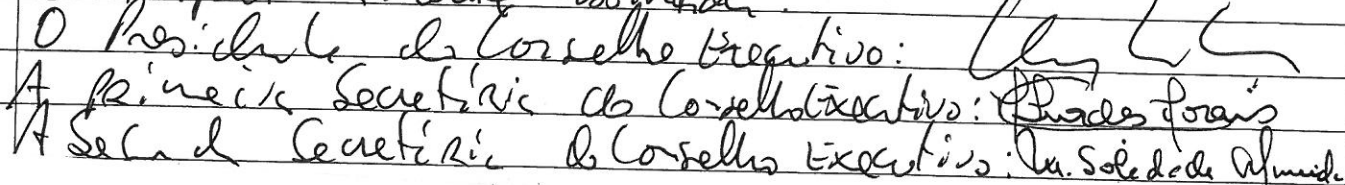 O Presidente do Conselho Executivo:
A primeira Secretária do Conselho Executivo:
A Segunda Secretária do Conselho Executivo: Ma. Soledade Almeida